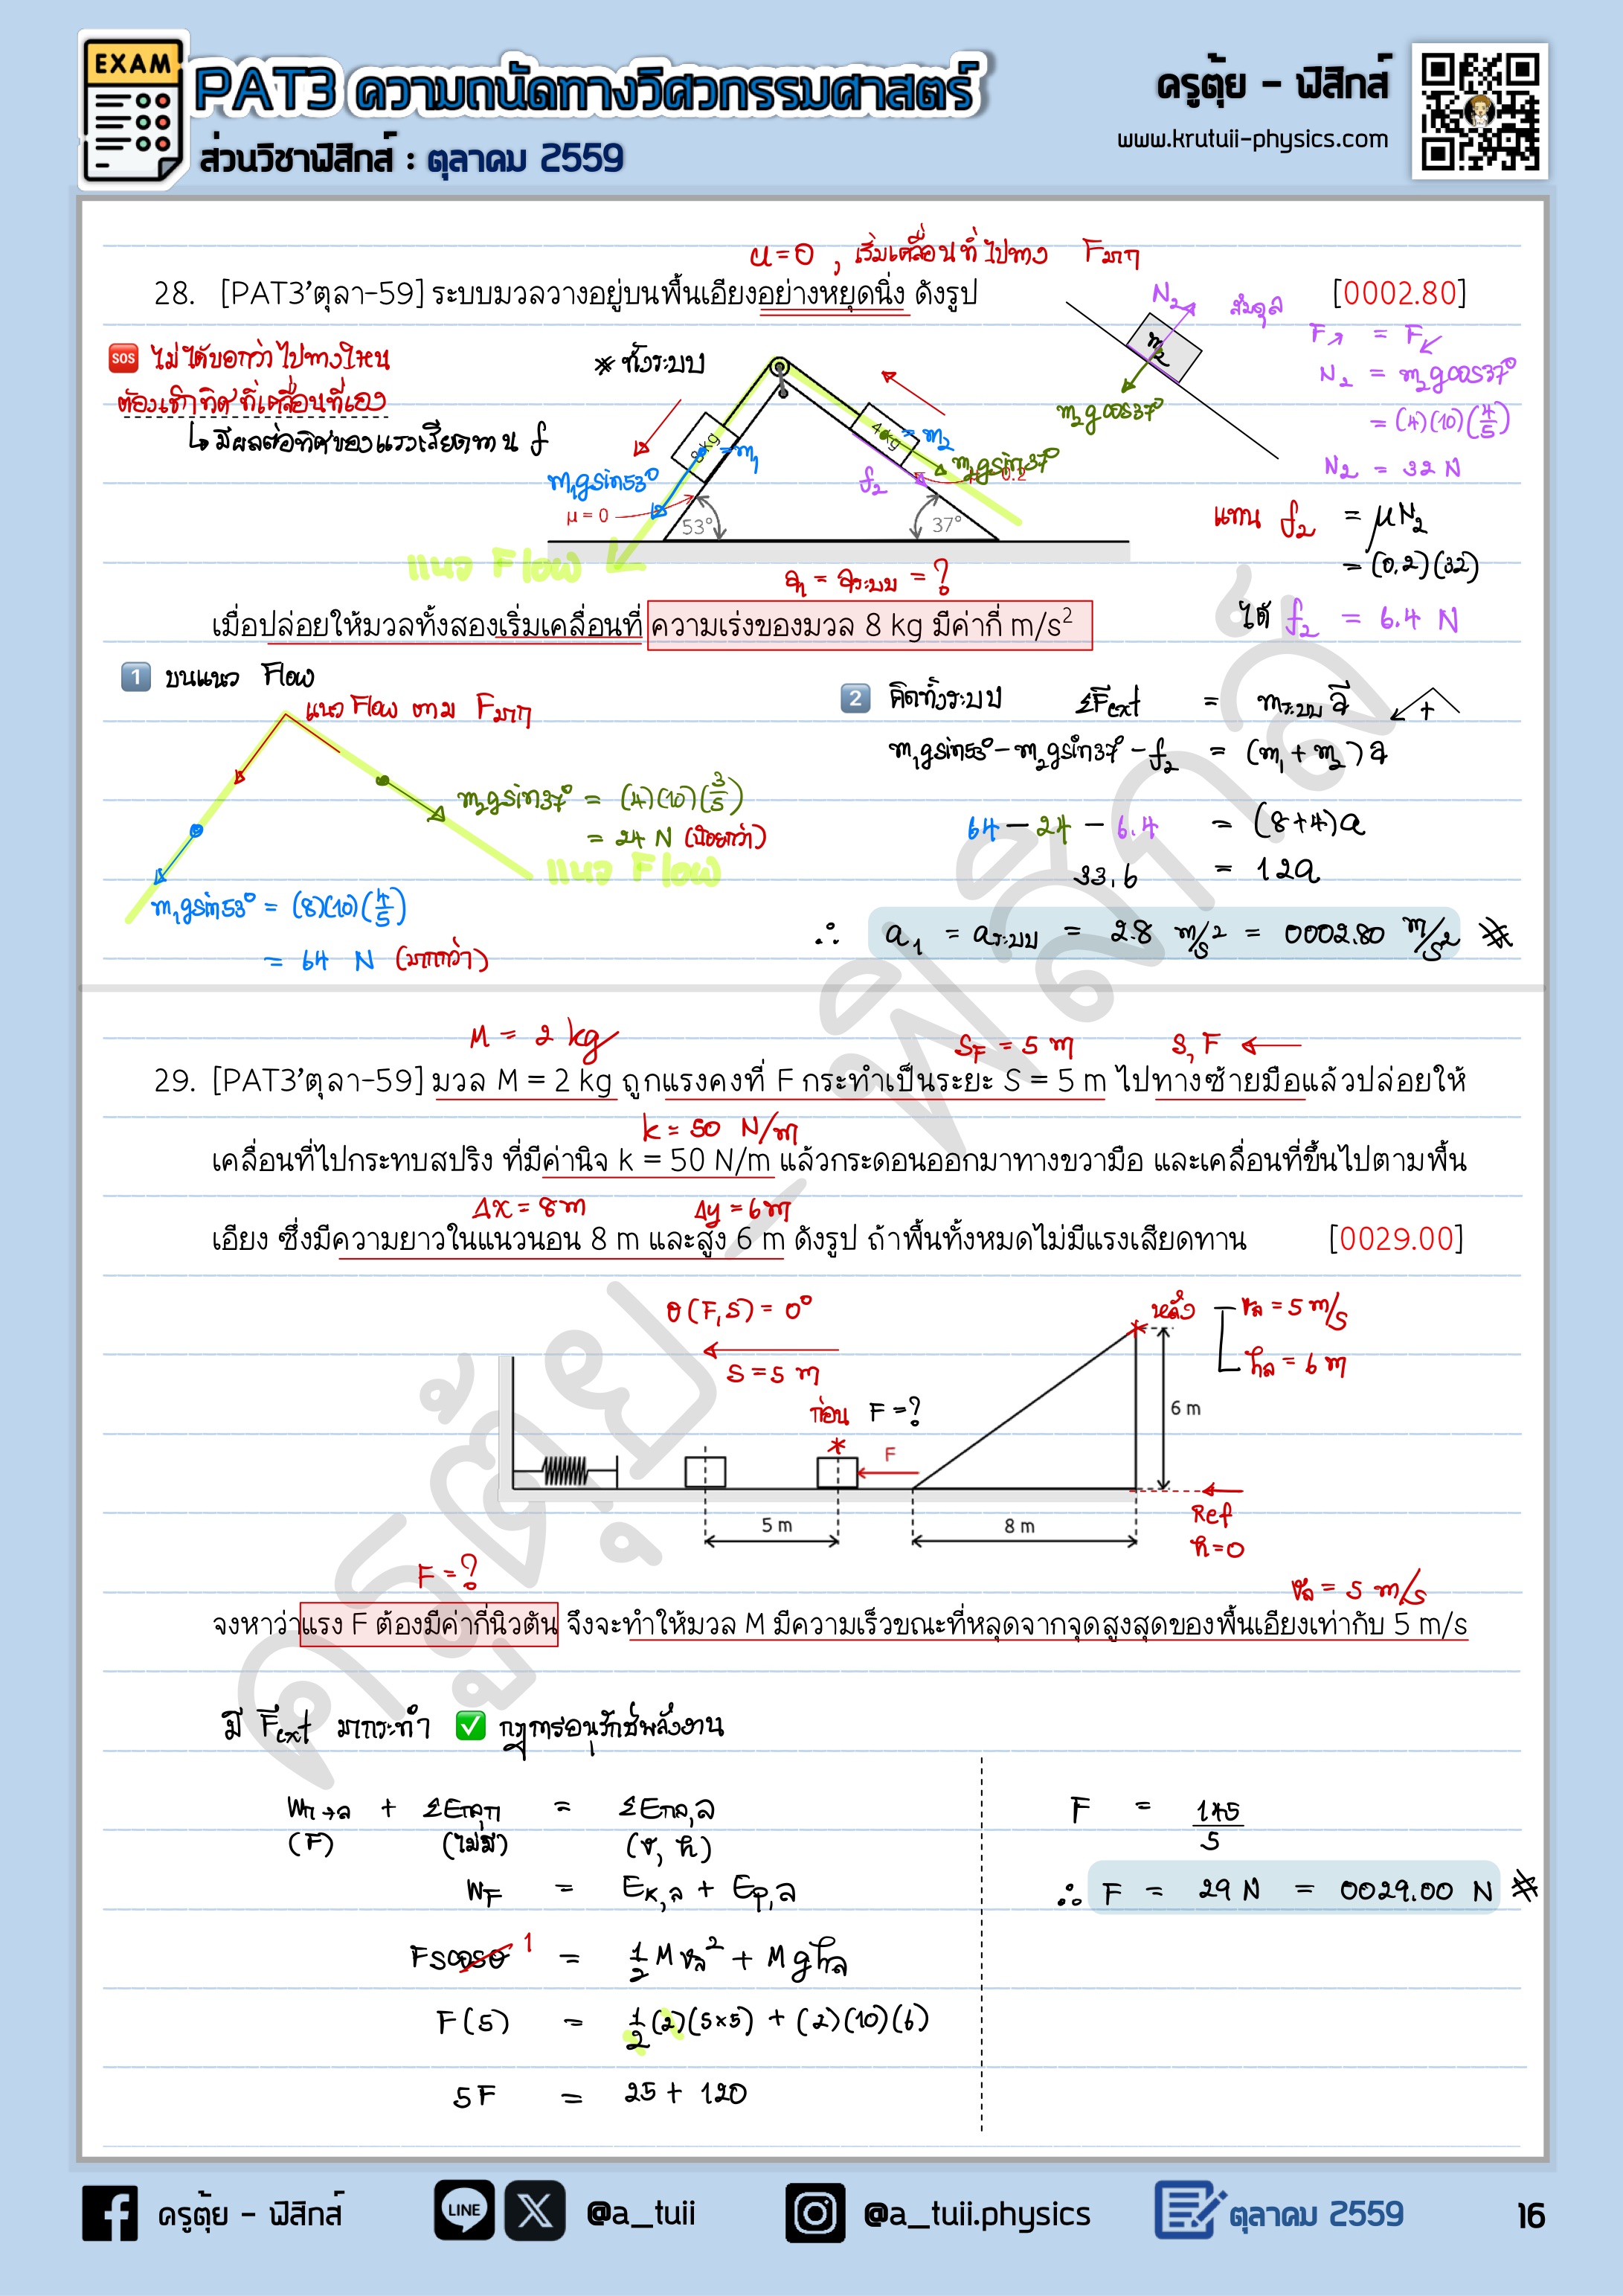 EXAM
PAT3 ความถนัดทางวิศวกรรมศาสตร์
ส่วนวิชาฟิสิกส์ : ตุลาคม 2559
ครูตุ้ย - ฟิสิกส์
www.krutuii-physics.com
u = 0 , เริ่มเคลื่อนที่ไปทาง Fมาก
28. [PAT3'ตุลา-59] ระบบมวลวางอยู่บนพื้นเอียงอย่างหยุดนิ่ง ดังรูป [0002.80]
SOS ไม่ได้บอกว่าไปทางไหน
ต้องเช็กทิศที่เคลื่อนที่เอง
↳ มีผลต่อทิศของแรงเสียดทาน f
* ทั้งระบบ
8 kg = m₁
4 kg = m₂
m₁gsin53°
m₂gsin37°
f₂
μ = 0
0.2
53°
37°
แนว Flow
N₂ สมดุล
m₂
m₂gcos37°
F↗ = F↙
N₂ = m₂gcos37°
= (4)(10)(4/5)
N₂ = 32 N
แทน f₂ = μN₂
= (0.2)(32)
ได้ f₂ = 6.4 N
a₁ = aระบบ = ?
เมื่อปล่อยให้มวลทั้งสองเริ่มเคลื่อนที่ ความเร่งของมวล 8 kg มีค่ากี่ m/s²
1 บนแนว Flow
แนว Flow ตาม Fมาก
m₂gsin37° = (4)(10)(3/5)
= 24 N (น้อยกว่า)
แนว Flow
m₁gsin53° = (8)(10)(4/5)
= 64 N (มากกว่า)
2 คิดทั้งระบบ ΣFext = mระบบ a +
m₁gsin53° - m₂gsin37° - f₂ = (m₁ + m₂)a
64 - 24 - 6.4 = (8+4)a
33.6 = 12a
∴ a₁ = aระบบ = 2.8 m/s² = 0002.80 m/s² #
M = 2 kg
S_F = 5 m
S, F ←
29. [PAT3'ตุลา-59] มวล M = 2 kg ถูกแรงคงที่ F กระทำเป็นระยะ S = 5 m ไปทางซ้ายมือแล้วปล่อยให้
k = 50 N/m
เคลื่อนที่ไปกระทบสปริง ที่มีค่านิจ k = 50 N/m แล้วกระดอนออกมาทางขวามือ และเคลื่อนที่ขึ้นไปตามพื้น
Δx = 8m Δy = 6m
เอียง ซึ่งมีความยาวในแนวนอน 8 m และสูง 6 m ดังรูป ถ้าพื้นทั้งหมดไม่มีแรงเสียดทาน [0029.00]
θ(F,S) = 0°
S = 5 m
ก่อน F = ?
F
หลัง vล = 5 m/s
hล = 6 m
6 m
5 m
8 m
Ref
h = 0
F = ?
vล = 5 m/s
จงหาว่าแรง F ต้องมีค่ากี่นิวตัน จึงจะทำให้มวล M มีความเร็วขณะที่หลุดจากจุดสูงสุดของพื้นเอียงเท่ากับ 5 m/s
มี Fext มากระทำ ✅ กฎการอนุรักษ์พลังงาน
Wก→ล + ΣEกล,ก = ΣEกล,ล
(F) (ไม่มี) (v, h)
W_F = Eₖ,ล + Eₚ,ล
FScosθ 1 = 1/2 Mvล² + Mghล
F(5) = 1/2 (2)(5×5) + (2)(10)(6)
5F = 25 + 120
F = 145/5
∴ F = 29 N = 0029.00 N #
ครูตุ้ย_ฟิสิกส์
ครูตุ้ย - ฟิสิกส์
LINE
@a_tuii
@a_tuii.physics
ตุลาคม 2559
16